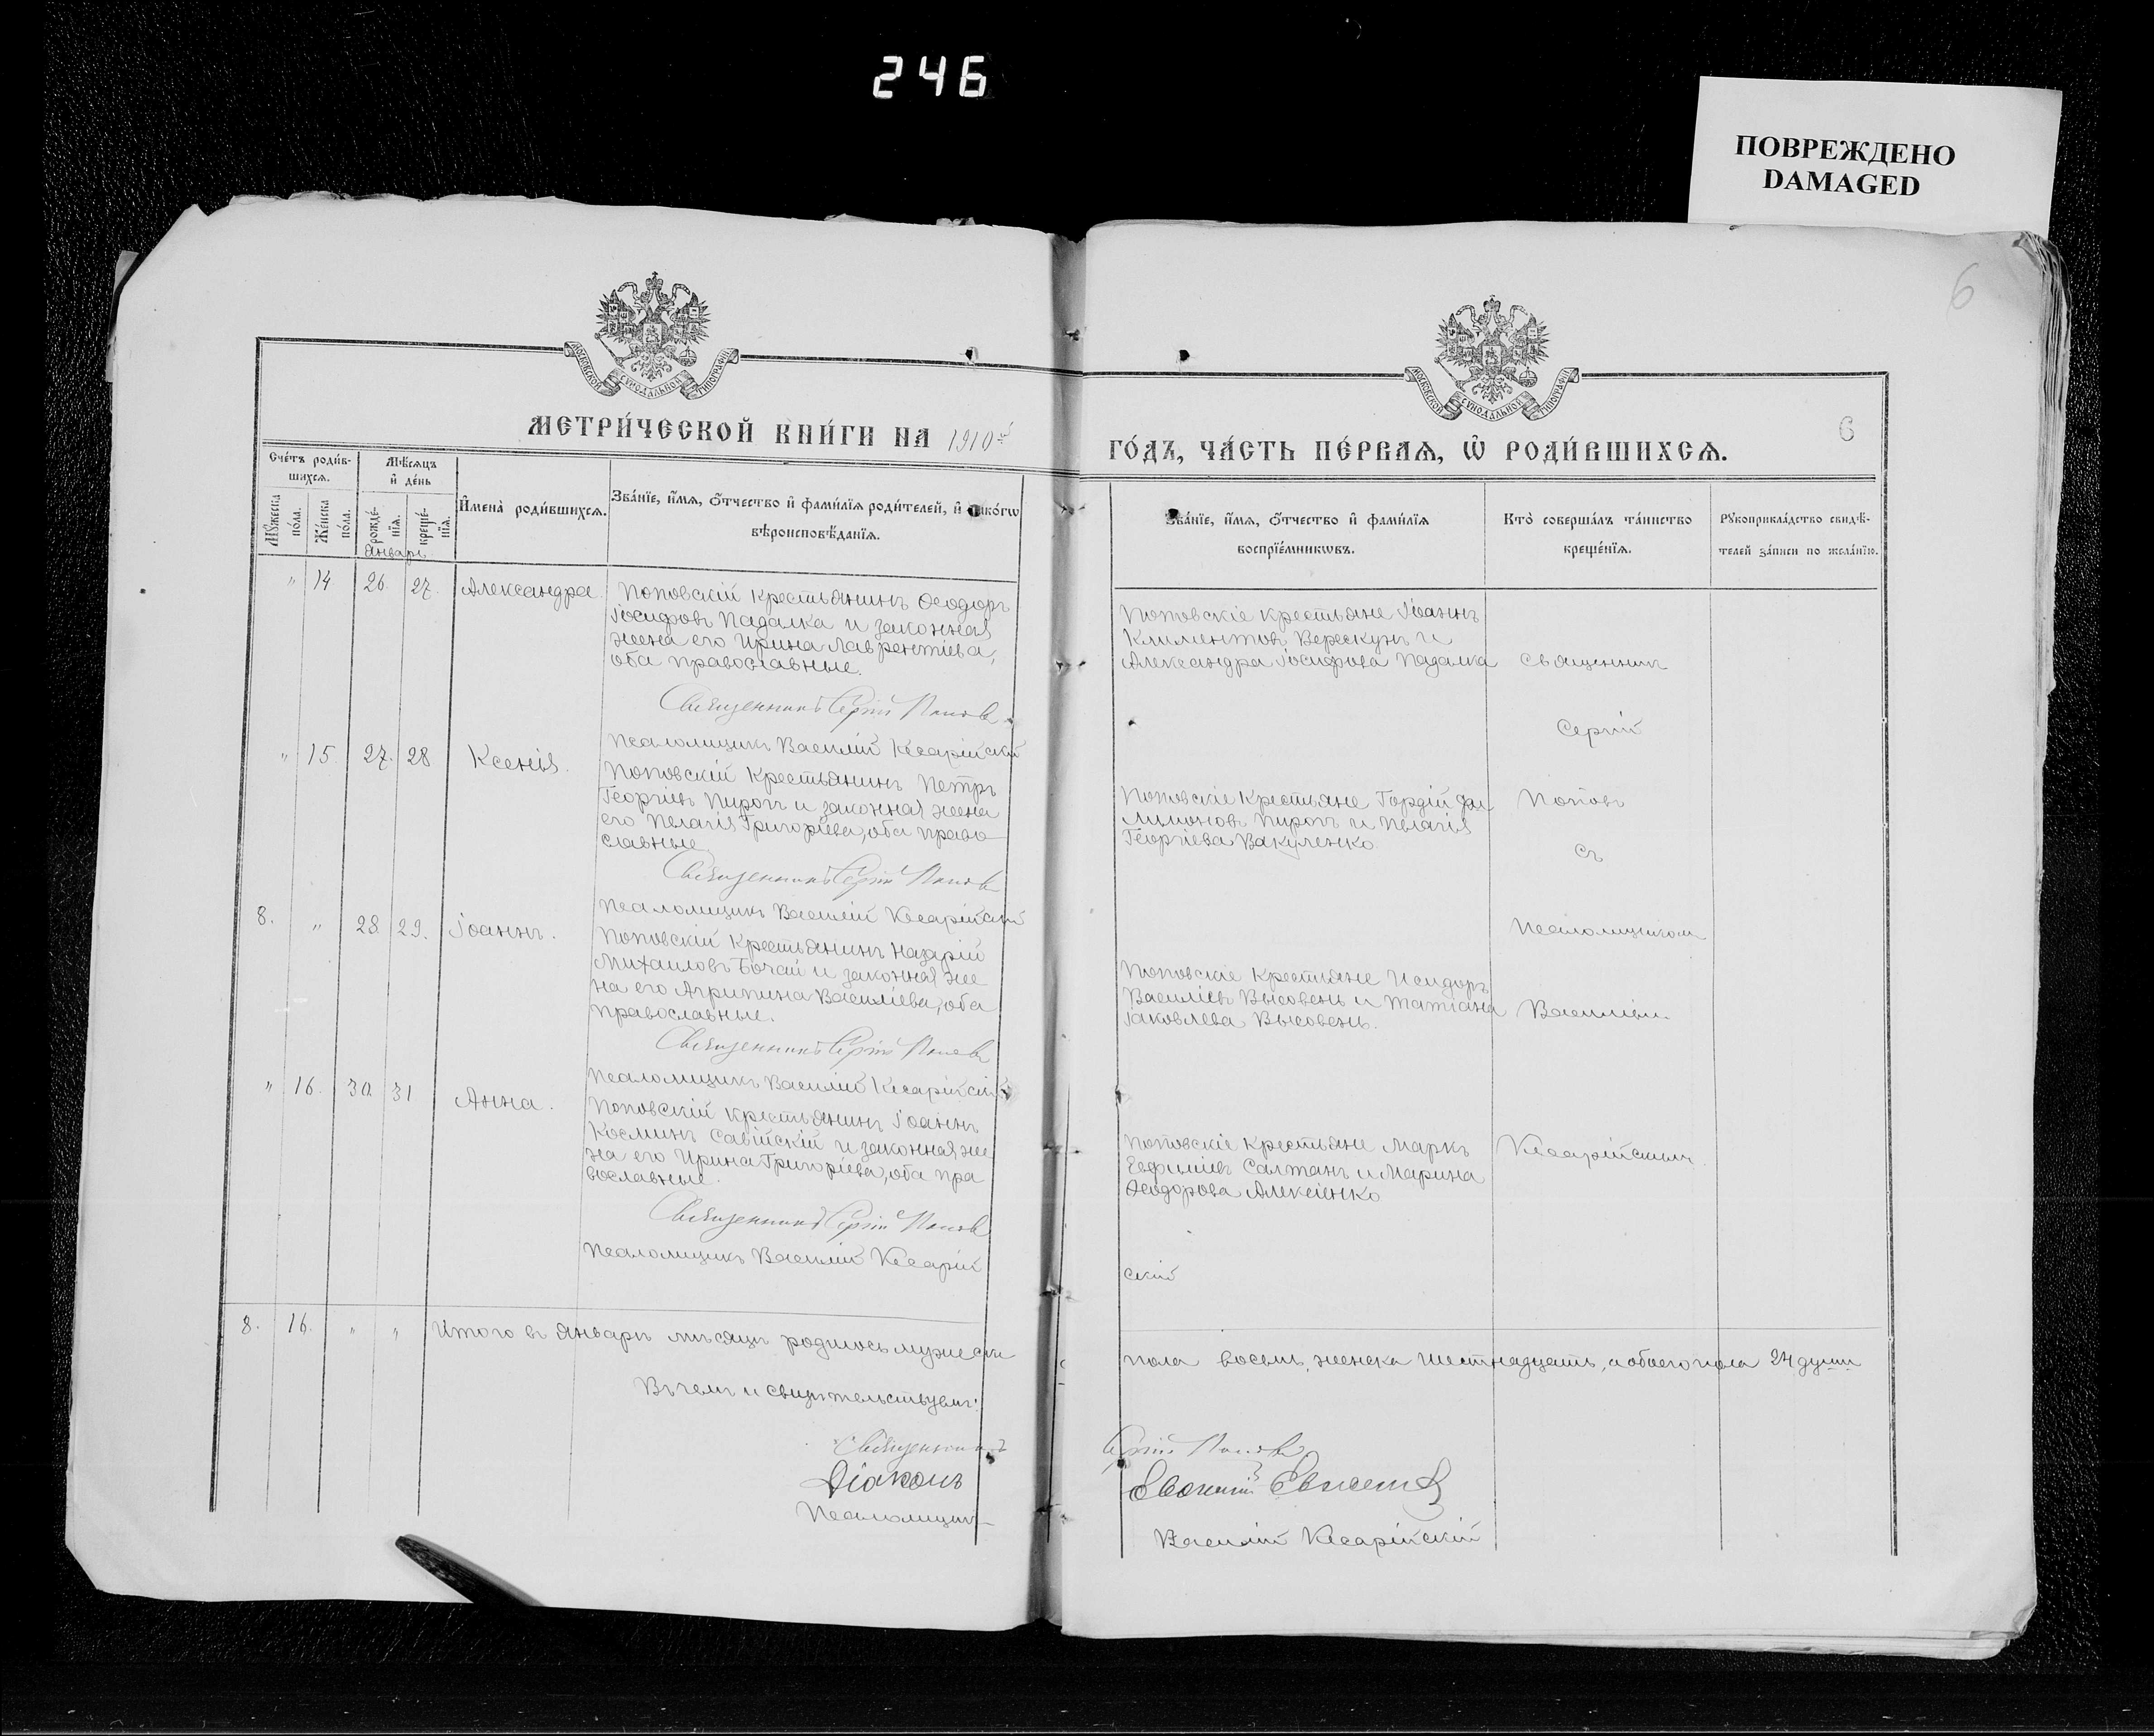 246
ПОВРЕЖДЕНО
DAMAGED
6
МОСКОВСКОЙ СѴНОДАЛЬНОЙ ТИПОГРАФІИ
МОСКОВСКОЙ СѴНОДАЛЬНОЙ ТИПОГРАФІИ
МЕТРИ́ЧЕСКОЙ КНИ́ГИ НА 1910й
ГО́ДЪ, ЧА́СТЬ ПЕ́РВАѦ, Ѡ҆ РОДИ́ВШИХСѦ.
6
Сче́тъ роди́в-
шихсѧ.
Мꙋ́жеска по́ла.
Же́нска по́ла.
Мѣ́сѧцъ
и҆ де́нь
рожде́-нїѧ.
креще́-нїѧ.
Январь
И҆мена̀ роди́вшихсѧ.
Зва́нїе, и҆́мѧ, ѻ҆́тчество и҆ фами́лїѧ роди́телей, и҆ како́гѡ
вѣроисповѣ́данїѧ.
Зва́нїе, и҆́мѧ, ѻ҆́тчество и҆ фами́лїѧ
воспрїе́мникѡвъ.
Кто̀ соверша́лъ та́инство
креще́нїѧ.
Рꙋкоприкла́дство свидѣ́-
телей за́писи по жела́нїю.
" 14 26. 27. Александра.
Поповскій крестьянинъ Ѳеодоръ
Іосифовъ Падалка и законная
жена его Ирина Лаврентіева,
оба православные.
Священникъ Сергій Поповъ
Псаломщикъ Василій Кесарійскій
Поповскіе крестьяне Іоаннъ
Климентовъ Верескунъ и
Александра Іосифова Падалка
Священникъ
Сергій
Поповъ
съ
Псаломщикомъ
Василіемъ
Кесарійскимъ
" 15. 27. 28 Ксенія.
Поповскій Крестьянинъ Петръ
Георгіевъ Пирогъ и законная жена
его Пелагія Григоріева, оба право
славные
Священникъ Сергій Поповъ
Псаломщикъ Василій Кесарійскій
Поповскіе Крестьяне Гордій Фи
лимоновъ Пирогъ и Пелагія
Георгіева Вакуленко.
8. " 28. 29. Іоаннъ.
Поповскій Крестьянинъ Назарій
Михаиловъ Бочай и законная же
на его Агрипина Василіева, оба
православные.
Священникъ Сергій Поповъ
Псаломщикъ Василій Кесарійскій
Поповскіе Крестьяне Исидоръ
Василіевъ Высовень и Татіана
Іаковлева Высовень.
" 16. 30. 31 Анна.
Поповскій крестьянинъ Іоаннъ
Косминъ Савійскій и законная же
на его Ирина Григоріева, оба пра
вославные.
Священникъ Сергій Поповъ
Псаломщикъ Василій Кесарій
скій
Поповскіе Крестьяне Маркъ
Евфиміевъ Салтанъ и Марина
Ѳеодорова Алексіенко
8. 16. " " Итого въ Январѣ мѣсяцѣ родилось мужеска
пола восемь, женска шестнадцать, а обоего пола 24 души
Въ чемъ и свидѣтельствуемъ:
Священникъ Сергій Поповъ
Діаконъ
Псаломщикъ Василій Кесарійскій